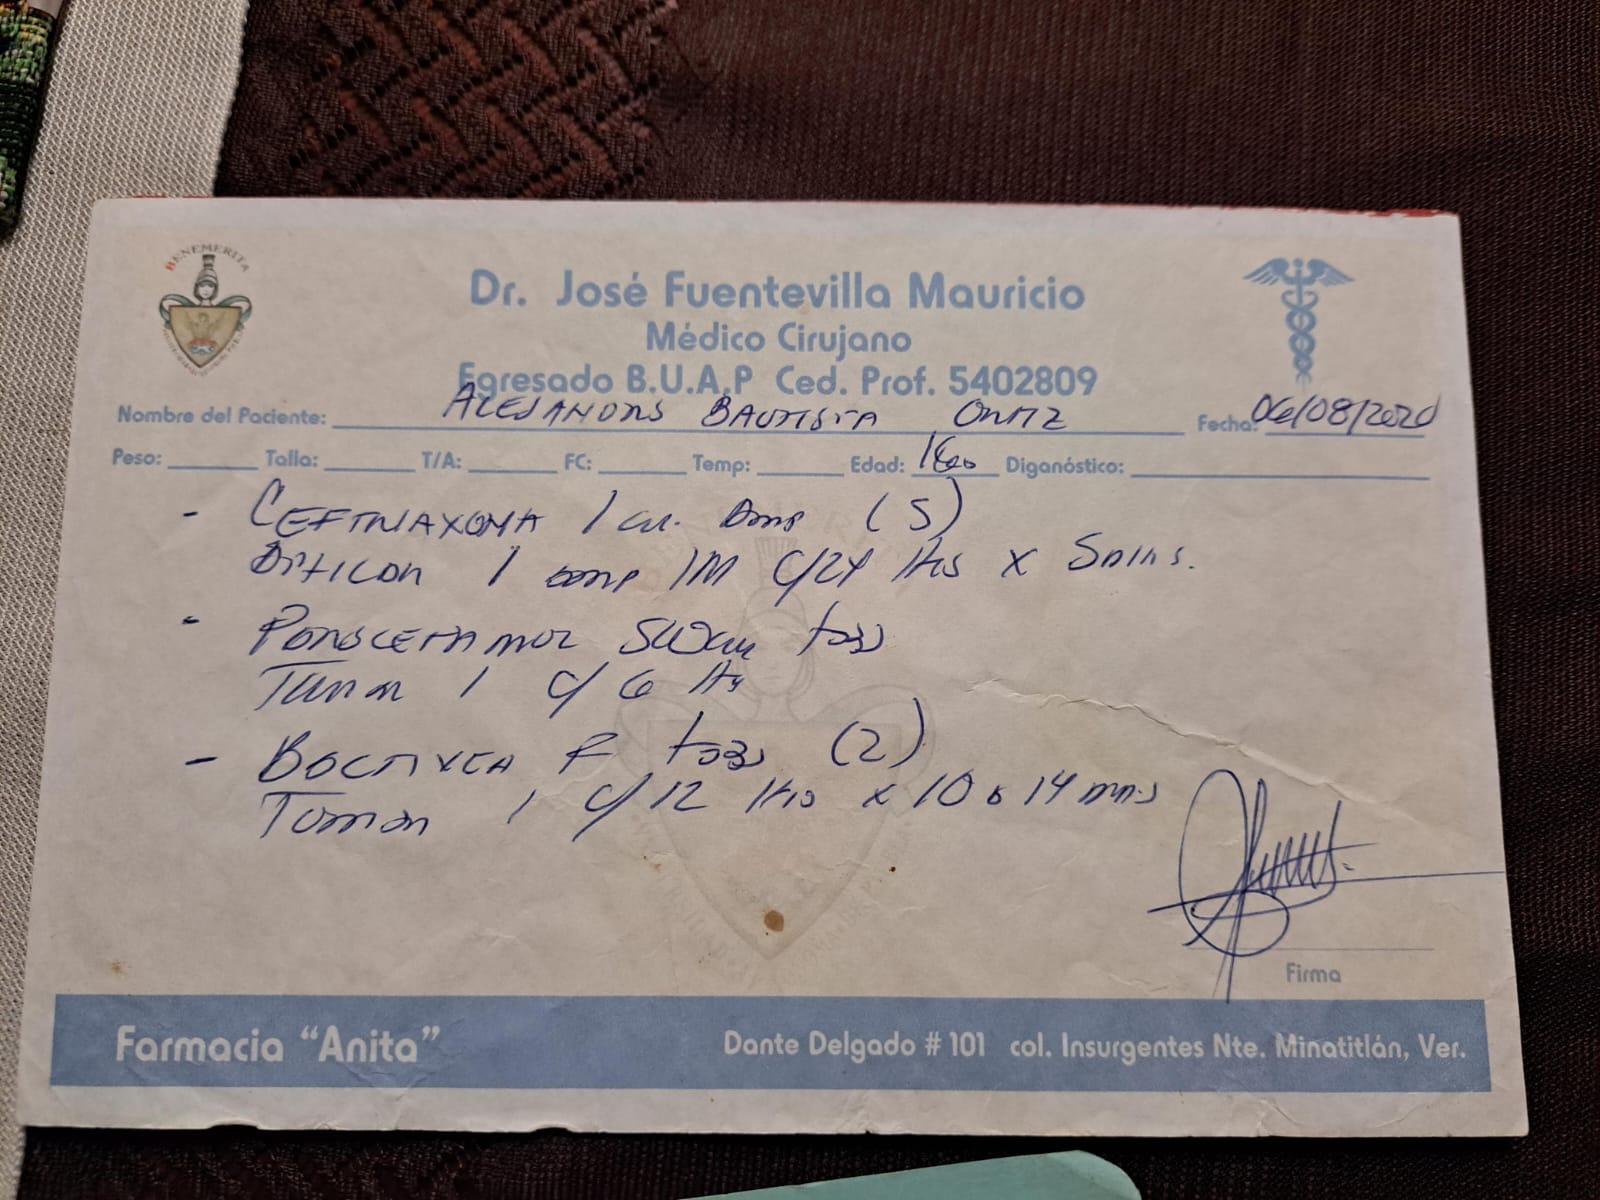 BENEMERITA
Dr. José Fuentevilla Mauricio
Médico Cirujano
Egresado B.U.A.P Ced. Prof. 5402809
Nombre del Paciente: ALEJANDRO BAUTISTA ORTIZ Fecha: 06/08/2020
Peso: Talla: T/A: FC: Temp: Edad: Diganóstico:
- CEFTRIAXONA 1 gr. Amp (5)
APLICAR 1 amp IM c/24 Hrs x 5 DIAS.
- PARACETAMOL 500 tabs
TOMAR 1 c/6 Hs
- BACTIVER F tabs (2)
TOMAR 1 c/12 Hrs x 10 a 14 DIAS
Firma
Farmacia "Anita"
Dante Delgado # 101 col. Insurgentes Nte. Minatitlán, Ver.